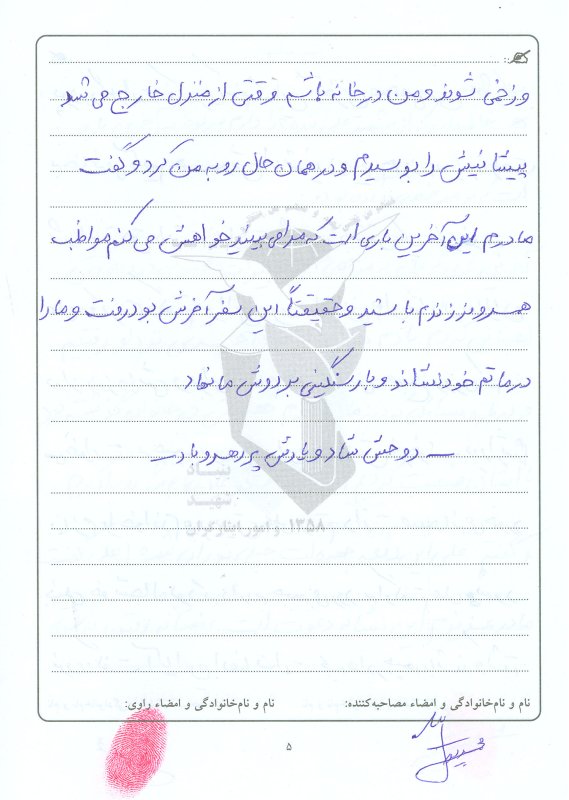 و زخمی شوند و من در خانه باشم وقتی از منزل خارج می شد
پیشانیش را بوسیدم و در همان حال رو به من کرد و گفت
مادرم این آخرین باری است که مرا می بینید خواهش می کنم مواظب
همسر و فرزندم باشید و حقیقتاً این سفر آخرش بود رفت و ما را
در ماتم خود نشاند و بار سنگینی بر دوش ما نهاد
ــ روحش شاد و یادش پر رهرو باد ــ
بنیاد
شهید
و امور ایثارگران ۱۳۵۸
نام و نام‌خانوادگی و امضاء مصاحبه‌کننده:
نام و نام‌خانوادگی و امضاء راوی:
۵